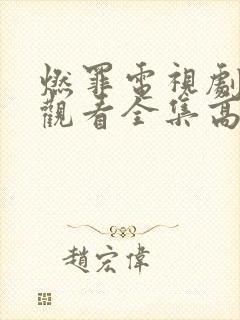 燃罪電視劇
觀看全集高
趙宏偉